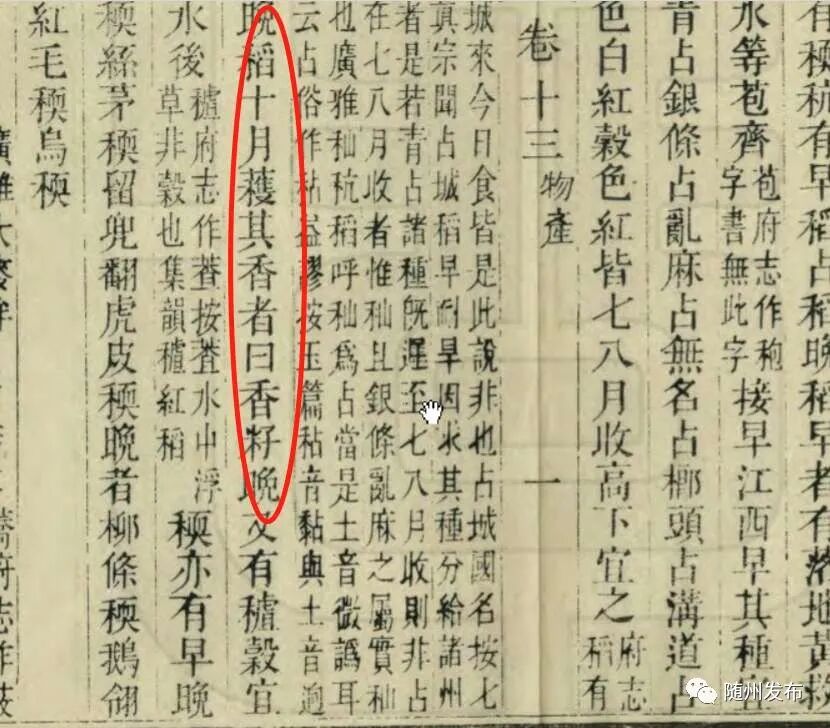 有稉秔有早稻占稻晚稻早者有落地黃救
水等苞齊
苞府志作
字書無此字
接早江西早其種宜
青占銀條占亂麻占無名占頭占溝道占
色白紅穀色紅皆七八月收高下宜之
府志
稻有
卷十三
物產
一
城來今日食皆是此說非也占城國名按七
真宗聞占城稻早耐旱因求其種分給諸州
者是若青占諸種旣遲至七八月收則非占
在七八月收者惟秈且銀條亂麻之屬實秈
也廣雅秈秔稻呼秈為占當是土音微譌耳
云占俗作秥益謬按玉篇秥音黏與土音迥
晚稻十月穫其香者曰香籽晚又有穀宜
水後
府志作按水中浮
草非穀也集韻紅稻
稉亦有早晚
稉絲茅稉留兜翻虎皮稉晚者柳條稉鵝翎
紅毛稉烏稉
随州发布